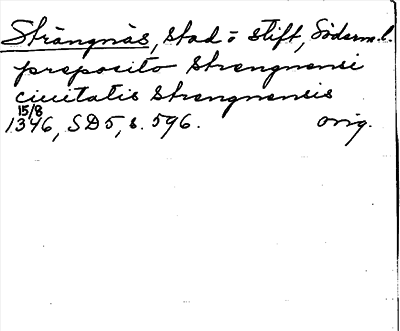 Strängnäs, stad o stift, Söderml.
preposito Strengnensi
ciuitatis Strengnensis
15/8
1346, SD5, s. 596. orig.